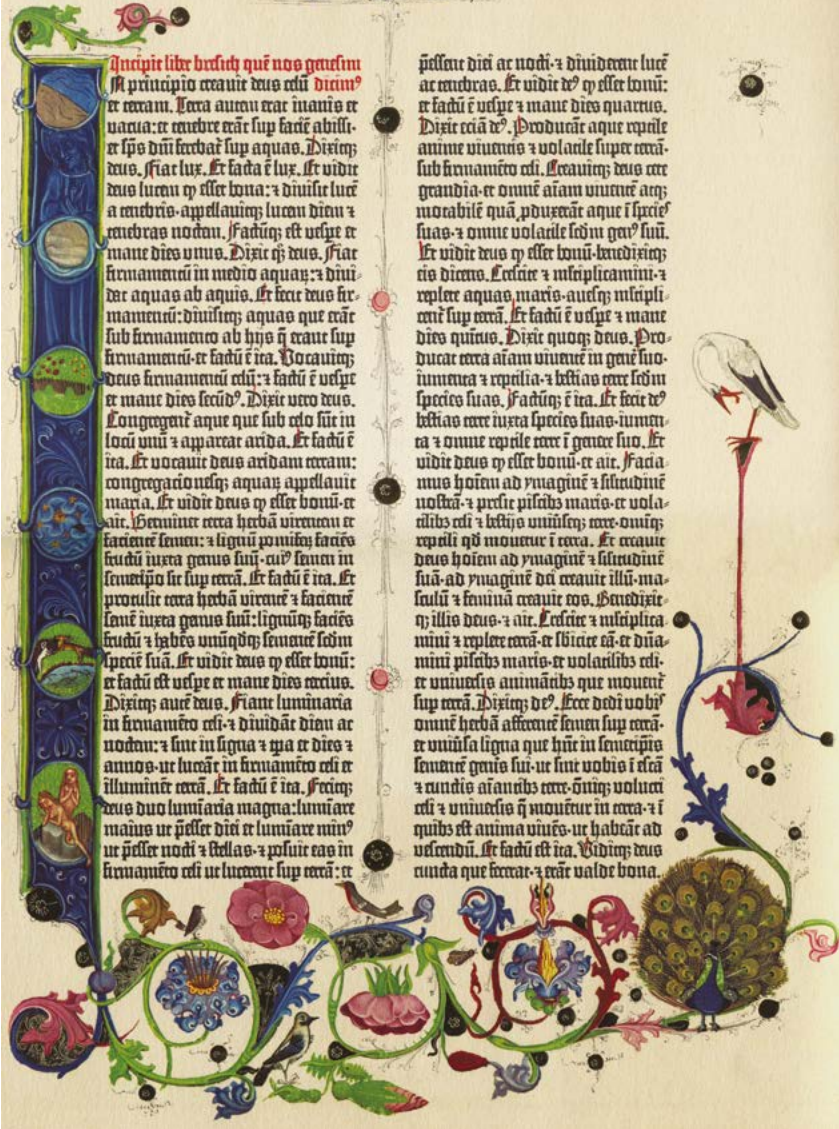 Incipit liber bresich quē nos genesim
In principio creauit deus celū dicim⁹
et terram. Terra autem erat inanis et
vacua: et tenebre erāt sup faciē abissi·
et sp̄s dn̄i ferebat̄ sup aquas. Dixitqꝫ
deus. Fiat lux. Et facta ē lux. Et vidit
deus lucem ꝙ esset bona: ⁊ diuisit lucē
a tenebris·appellauitqꝫ lucem diem ⁊
tenebras noctem. Factūqꝫ est vespe et
mane dies vnus. Dixit qꝫ deus. Fiat
firmamentū in medio aquaꝝ: ⁊ diui-
dat aquas ab aquis. Et fecit deus fir-
mamentū: diuisitqꝫ aquas que erāt
sub firmamento ab hijs q̄ erant sup
firmamentū·et factū ē ita. Vocauitqꝫ
deus firmamentū celū: ⁊ factū ē vespe
et mane dies secūd⁹. Dixit vero deus.
Congregent̄ aque que sub celo sūt in
locū vnū ⁊ appareat arida. Et factū ē
ita. Et vocauit deus aridam terram:
congregacionesqꝫ aquaꝝ appellauit
maria. Et vidit deus ꝙ esset bonū·et
ait. Germinet terra herbā virentem et
facientē semen: ⁊ lignū pomifeꝝ faciēs
fructū iuxta genus suū·cui⁹ semen in
semetip̄o sit sup terrā. Et factū ē ita. Et
protulit terra herbā virentē ⁊ facientē
semē iuxta genus suū: lignūqꝫ faciēs
fructū ⁊ habēs vnūqdqꝫ sementē scdm
speciē suā. Et vidit deus ꝙ esset bonū:
et factū est vespe et mane dies tercius.
Dixitqꝫ autē deus. Fiant luminaria
in firmamēto celi·⁊ diuidāt diem ac
noctem: ⁊ sint in signa ⁊ tp̄a et dies ⁊
annos·ut luceāt in firmamēto celi et
illuminēt terrā. Et factū ē ita. Fecitqꝫ
deus duo lumīaria magna: lumīare
maius ut p̄esset diei et lumīare min⁹
ut p̄esset nocti ⁊ stellas·⁊ posuit eas in
firmamēto celi ut lucerent sup terrā: et
p̄essent diei ac nocti·⁊ diuiderent lucē
ac tenebras. Et vidit de⁹ ꝙ esset bonū:
et factū ē vespe ⁊ mane dies quartus.
Dixit eciā de⁹. Producāt aque reptile
anime viuentis ⁊ volatile super terrā·
sub firmamēto celi. Creauitqꝫ deus cete
grandia·et omnē aīam viuentē atqꝫ
motabilē quā ꝓduxerāt aque ī species
suas·⁊ omne volatile scdm gen⁹ suū.
Et vidit deus ꝙ esset bonū·benedixitqꝫ
eis dicens. Crescite ⁊ mltiplicamini·⁊
replete aquas maris·auesqꝫ mltipli-
cent̄ sup terrā. Et factū ē vespe ⁊ mane
dies quītus. Dixit quoqꝫ deus. Pro-
ducat terra aīam viuentē in genē suo·
iumenta ⁊ reptilia·⁊ bestias terre scdm
species suas. Factūqꝫ ē ita. Et fecit de⁹
bestias terre iuxta species suas·iumen-
ta ⁊ omne reptile terre ī genere suo. Et
vidit deus ꝙ esset bonū·et ait. Facia-
mus hoīem ad ymaginē ⁊ silitudinē
nostrā·⁊ presit piscibꝫ maris·et vola-
tilibꝫ celi ⁊ bestijs vniūseqꝫ terre·omīqꝫ
reptili qd mouetur ī terra. Et creauit
deus hoīem ad ymaginē ⁊ silitudinē
suā·ad ymaginē dei creauit illū·ma-
sculū ⁊ feminā creauit eos. Benedixit-
qꝫ illis deus·⁊ ait. Crescite ⁊ mltiplica-
mini ⁊ replete terrā·et sbicite eā·et dn̄a-
mini piscibꝫ maris·et volatilibꝫ celi·
et vniuersis animātibꝫ que mouent̄
sup terrā. Dixitqꝫ de⁹. Ecce dedi vobis
omnē herbā afferentē semen sup terrā·
et vniūsa ligna que hn̄t in semetip̄is
sementē genīs sui·ut sint vobis ī escā
⁊ cunctis aīantibꝫ terre·oīqꝫ volucri
celi ⁊ vniuersis q̄ mouētur in terra·⁊ ī
quibꝫ est anima viuēs·ut habeāt ad
vescendū. Et factū est ita. Viditqꝫ deus
cuncta que fecerat·⁊ erāt valde bona.